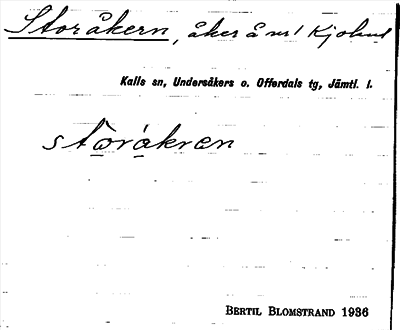 Storåkern, åker å nr 1 Kjoland
Kalls sn, Undersåkers o. Offerdals tg, Jämtl. l.
storåkren
BERTIL BLOMSTRAND 1936